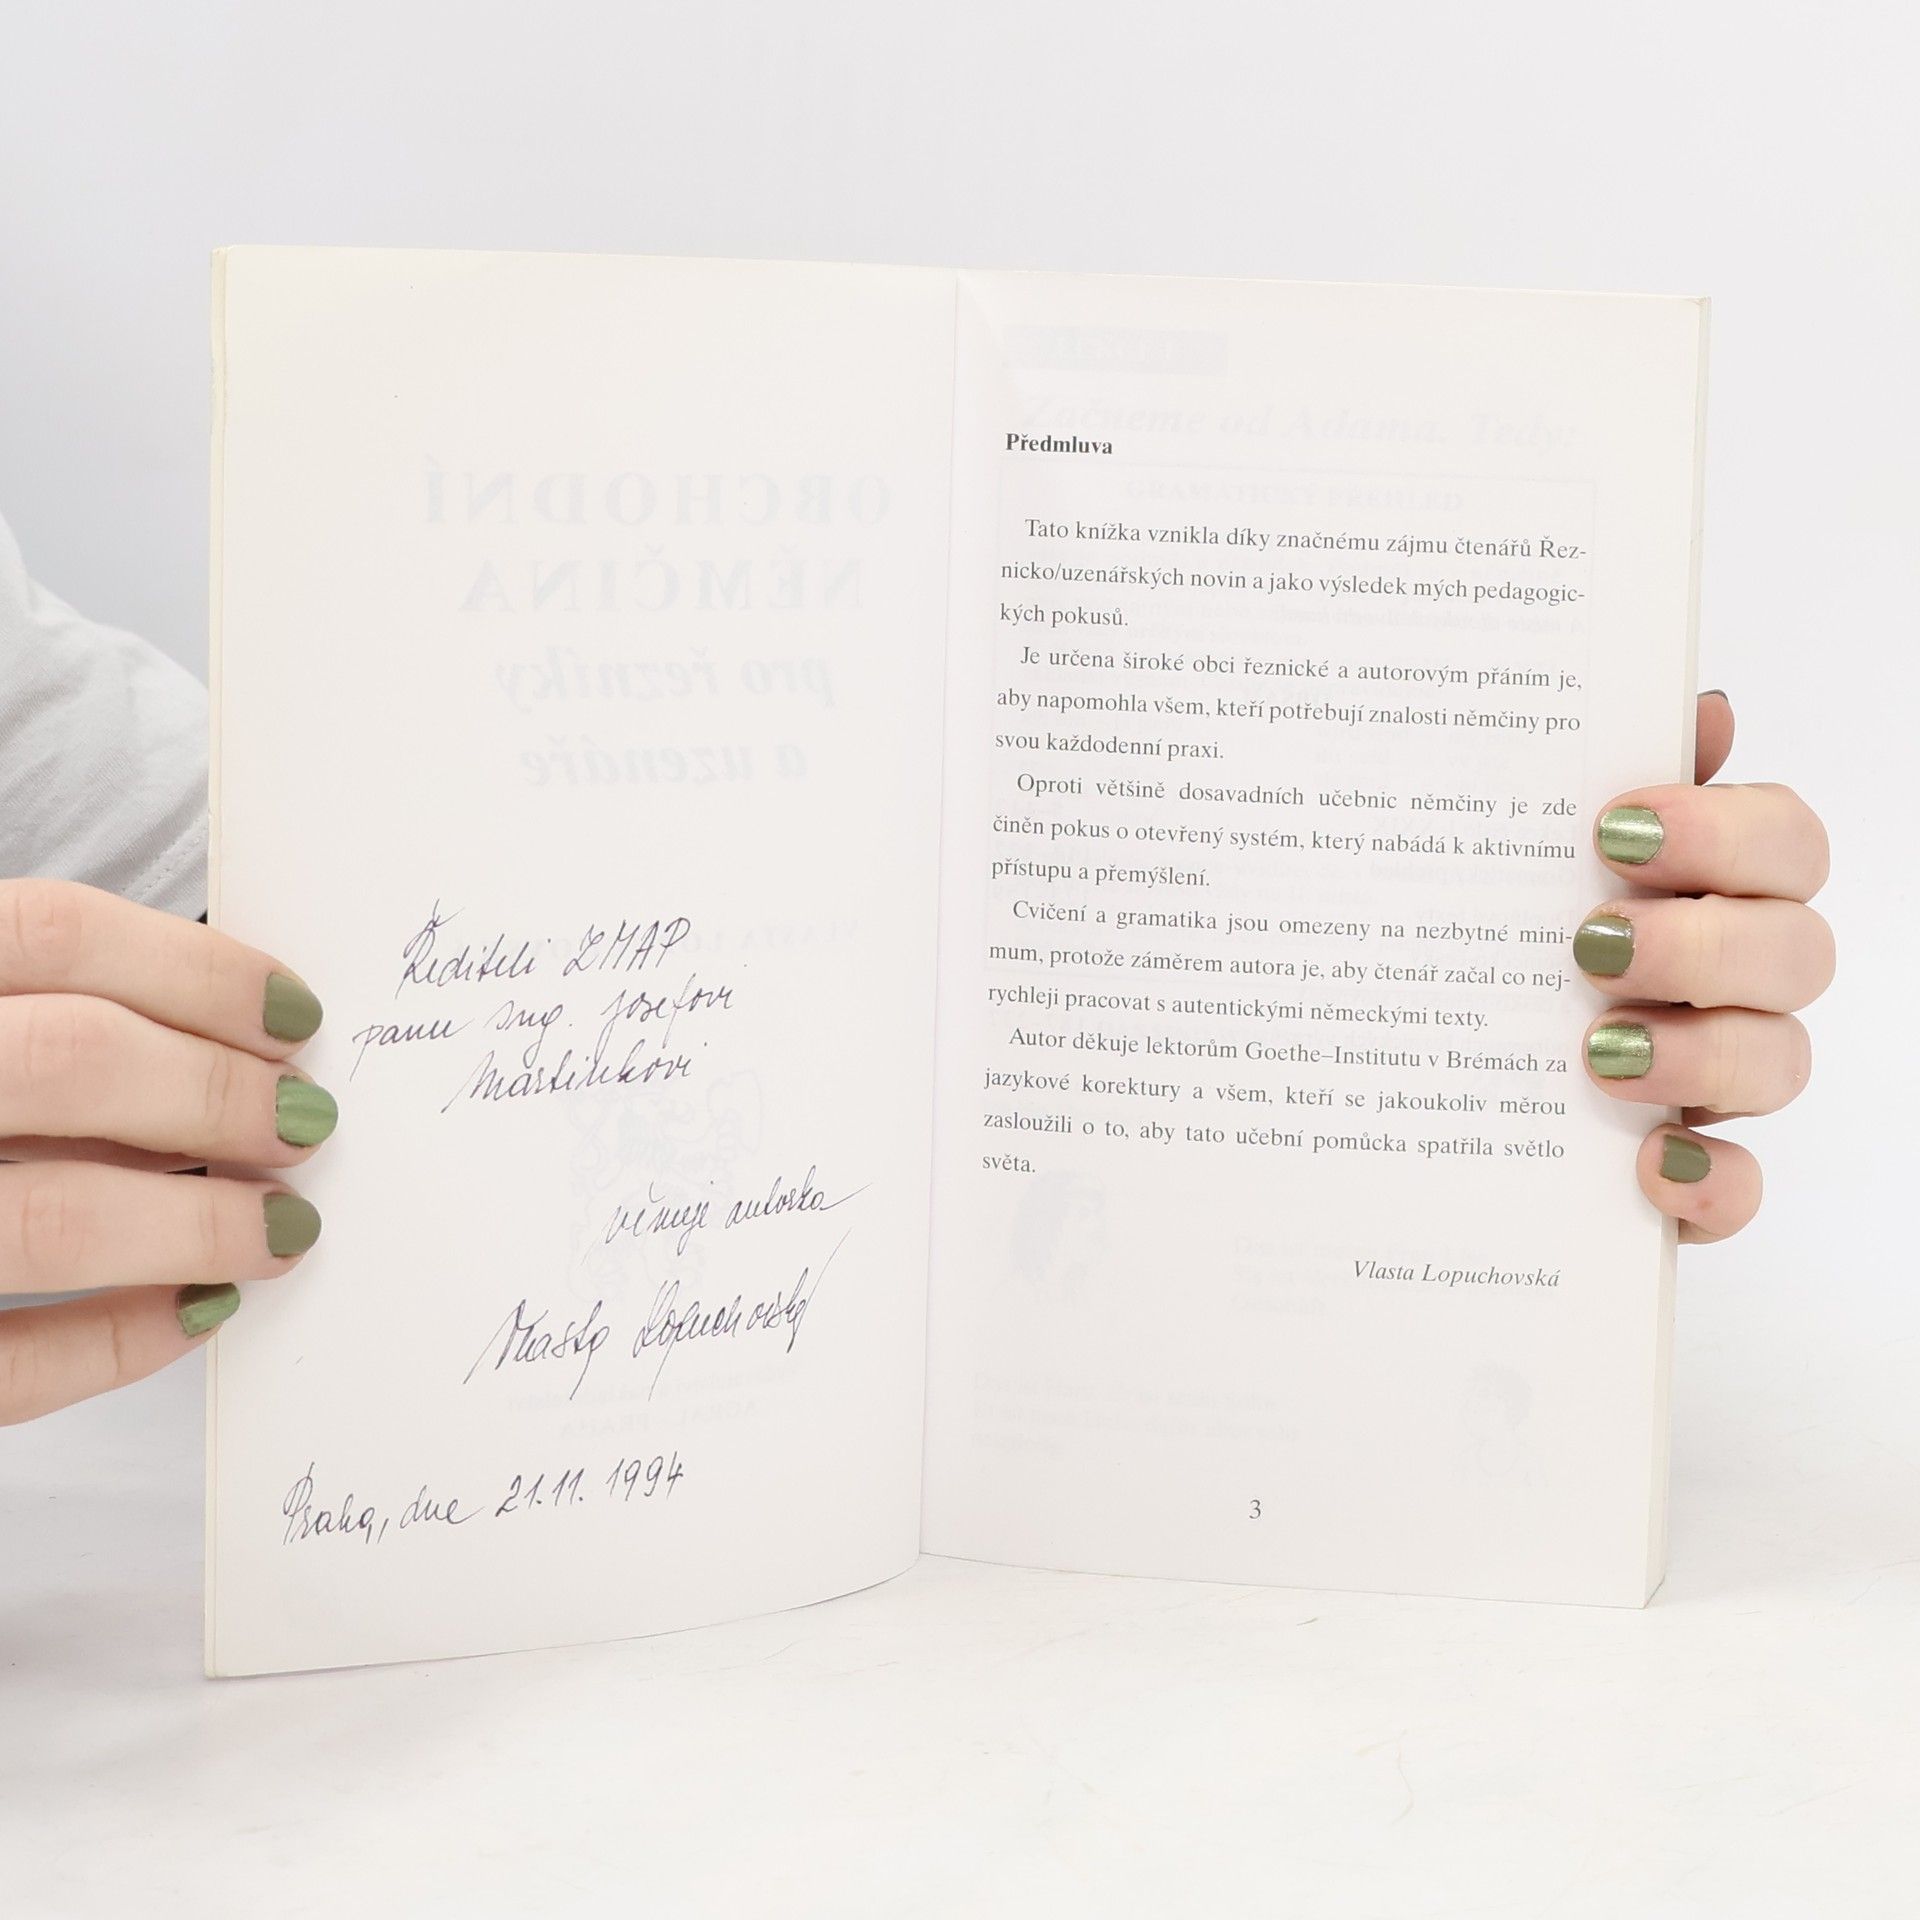 OBCHODNÍ
NĚMČINA
pro řezníky
a uzenáře
Řediteli ZMAP
panu Ing. Josefovi
Martinkovi
věnuje autorka
Vlasta Lopuchovská
Praha, dne 21.11.1994
Začneme od Adama. Tedy:
GRAMATICKÝ PŘEHLED
Předmluva
Tato knížka vznikla díky značnému zájmu čtenářů Řez-
nicko/uzenářských novin a jako výsledek mých pedagogic-
kých pokusů.
Je určena široké obci řeznické a autorovým přáním je,
aby napomohla všem, kteří potřebují znalosti němčiny pro
svou každodenní praxi.
Oproti většině dosavadních učebnic němčiny je zde
činěn pokus o otevřený systém, který nabádá k aktivnímu
přístupu a přemýšlení.
Cvičení a gramatika jsou omezeny na nezbytné mini-
mum, protože záměrem autora je, aby čtenář začal co nej-
rychleji pracovat s autentickými německými texty.
Autor děkuje lektorům Goethe–Institutu v Brémách za
jazykové korektury a všem, kteří se jakoukoliv měrou
zasloužili o to, aby tato učební pomůcka spatřila světlo
světa.
Vlasta Lopuchovská
3